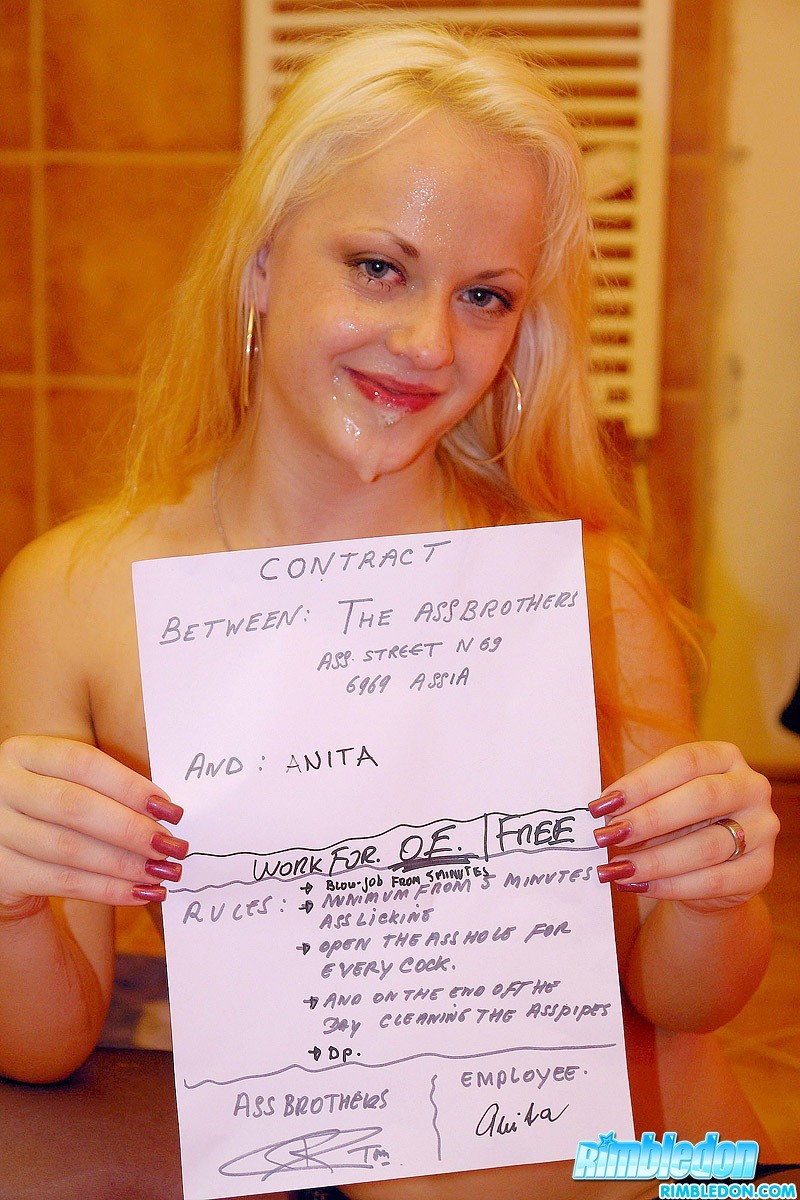 CONTRACT
BETWEEN: THE ASSBROTHERS
ASS. STREET N 69
6969 ASSIA
AND: ANITA
WORK FOR. OE. | FREE
→ BLOW-JOB FROM 5 MINUTES
RULES: → MINIMUM FROM 5 MINUTES
ASSLICKING
→ OPEN THE ASSHOLE FOR
EVERY COCK.
→ AND ON THE END OFF THE
DAY CLEANING THE ASSPIPES
→ DP.
ASSBROTHERS
EMPLOYEE.
Anita
Rimbledon
RIMBLEDON.COM